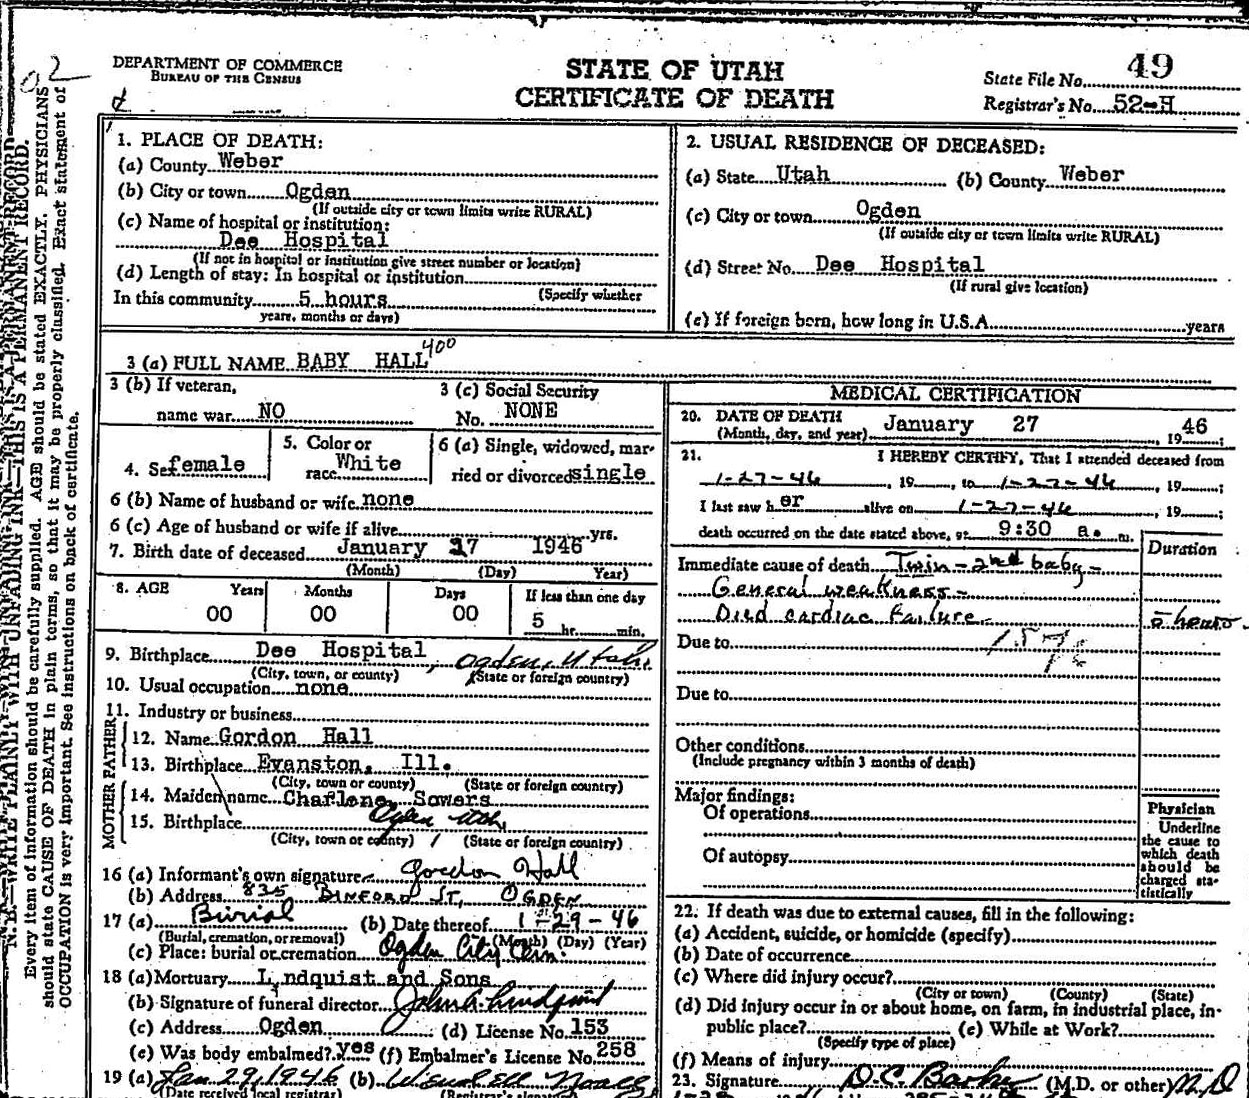 02
DEPARTMENT OF COMMERCE
BUREAU OF THE CENSUS
STATE OF UTAH
CERTIFICATE OF DEATH
State File No. 49
Registrar's No. 52-H
N.B.—WRITE PLAINLY WITH UNFADING INK—THIS IS A PERMANENT RECORD.
Every item of information should be carefully supplied. AGE should be stated EXACTLY. PHYSICIANS
should state CAUSE OF DEATH in plain terms, so that it may be properly classified. Exact statement of
OCCUPATION is very important. See instructions on back of certificate.
1. PLACE OF DEATH:
(a) County Weber
(b) City or town Ogden
(If outside city or town limits write RURAL)
(c) Name of hospital or institution:
Dee Hospital
(If not in hospital or institution give street number or location)
(d) Length of stay: In hospital or institution
(Specify whether
In this community 5 hours
years, months or days)
2. USUAL RESIDENCE OF DECEASED:
(a) State Utah (b) County Weber
(c) City or town Ogden
(If outside city or town limits write RURAL)
(d) Street No. Dee Hospital
(If rural give location)
(e) If foreign born, how long in U.S.A. years
3 (a) FULL NAME BABY HALL 400
3 (b) If veteran,
name war NO
3 (c) Social Security
No. NONE
4. Sex female
5. Color or
race White
6 (a) Single, widowed, mar-
ried or divorced single
6 (b) Name of husband or wife none
6 (c) Age of husband or wife if alive yrs.
7. Birth date of deceased January 27 1946
(Month) (Day) Year)
8. AGE Years Months Days If less than one day
00 00 00 5 hr. min.
9. Birthplace Dee Hospital, Ogden, Utah.
(City, town, or county) (State or foreign country)
10. Usual occupation none
11. Industry or business
FATHER
12. Name Gordon Hall
13. Birthplace Evanston, Ill.
(City, town or county) (State or foreign country)
MOTHER
14. Maiden name Charlene Sowers
15. Birthplace Ogden Utah,
(City, town or county) (State or foreign country)
16 (a) Informant's own signature Gordon Hall
(b) Address 835 BINFORD ST, OGDEN
17 (a) Burial (b) Date thereof 1-29-46
(Burial, cremation, or removal) (Month) (Day) (Year)
(c) Place: burial or cremation Ogden City Cem.
18 (a) Mortuary Lindquist and Sons
(b) Signature of funeral director John A. Lindquist
(c) Address Ogden (d) License No. 153
(e) Was body embalmed? yes (f) Embalmer's License No. 258
19 (a) Jan 29, 1946 (b)
(Date received local registrar) (Registrar's signature)
MEDICAL CERTIFICATION
20. DATE OF DEATH
(Month, day, and year) January 27, 19 46;
21. I HEREBY CERTIFY, That I attended deceased from
1-27-46, 19 , to 1-27-46, 19 ;
I last saw her alive on 1-27-46, 19 ;
death occurred on the date stated above, at 9:30 a. m.
Duration
Immediate cause of death Twin-2nd baby-
General weakness-
Died cardiac failure 5 hours
Due to
Due to
Other conditions
(Include pregnancy within 3 months of death)
Major findings:
Of operations
Of autopsy
Physician
Underline
the cause to
which death
should be
charged sta-
tistically
22. If death was due to external causes, fill in the following:
(a) Accident, suicide, or homicide (specify)
(b) Date of occurrence
(c) Where did injury occur?
(City or town) (County) (State)
(d) Did injury occur in or about home, on farm, in industrial place, in
public place? (e) While at Work?
(Specify type of place)
(f) Means of injury
23. Signature (M.D. or other) M D